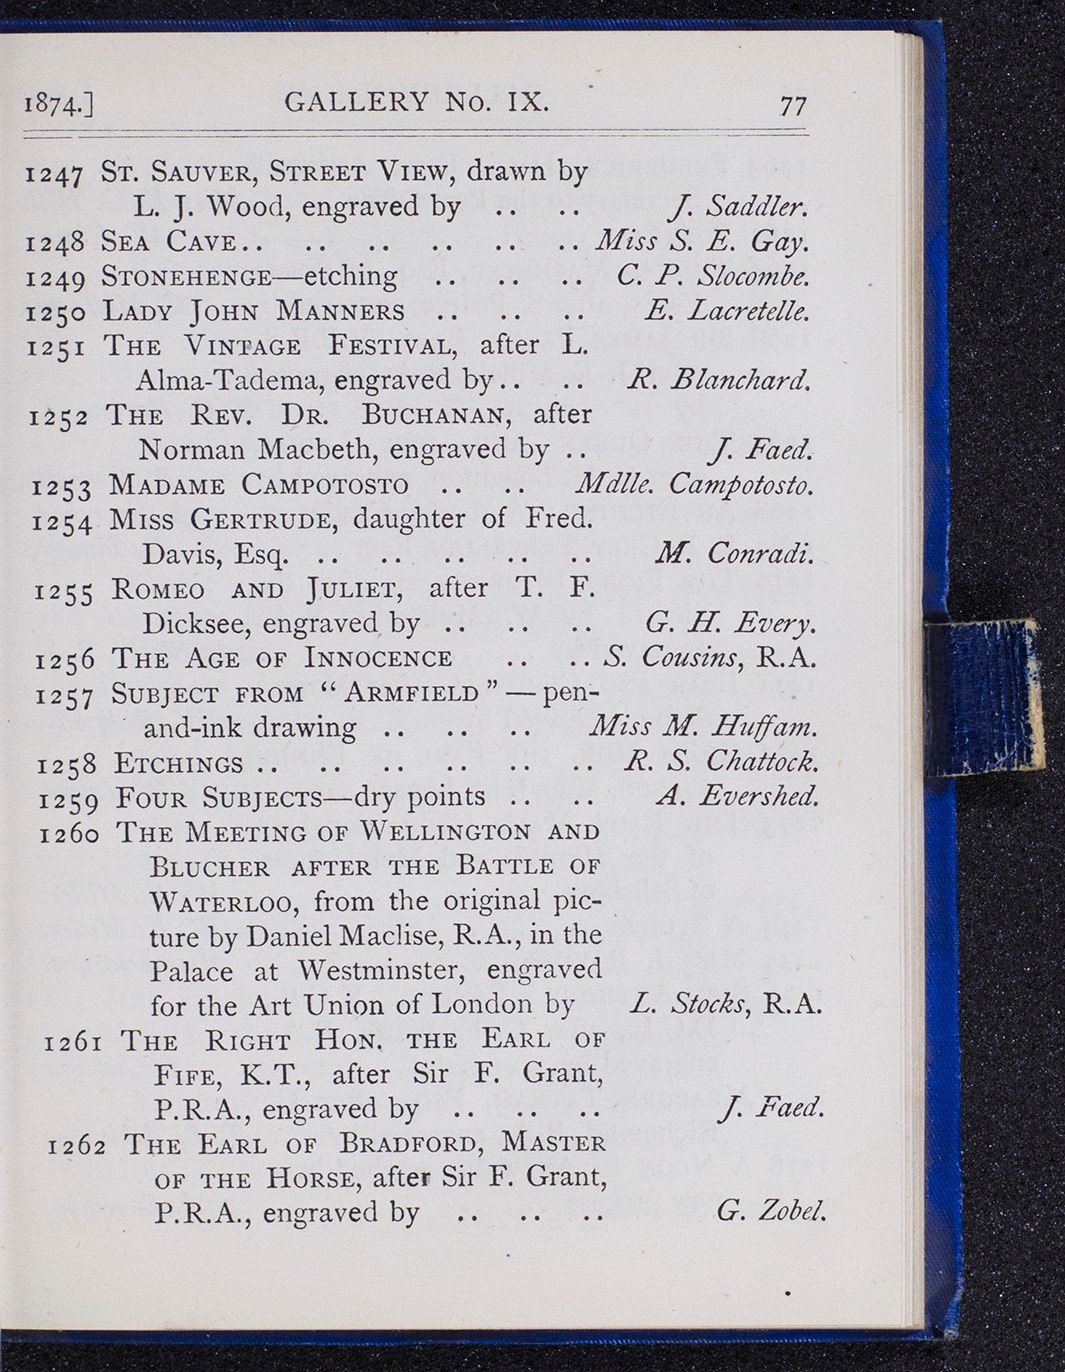 1874.] GALLERY No. IX. 77
1247 St. Sauver, Street View, drawn by
L. J. Wood, engraved by .. .. J. Saddler.
1248 Sea Cave .. .. .. .. .. .. Miss S. E. Gay.
1249 Stonehenge—etching .. .. .. C. P. Slocombe.
1250 Lady John Manners .. .. .. E. Lacretelle.
1251 The Vintage Festival, after L.
Alma-Tadema, engraved by .. .. R. Blanchard.
1252 The Rev. Dr. Buchanan, after
Norman Macbeth, engraved by .. J. Faed.
1253 Madame Campotosto .. .. Mdlle. Campotosto.
1254 Miss Gertrude, daughter of Fred.
Davis, Esq. .. .. .. .. .. M. Conradi.
1255 Romeo and Juliet, after T. F.
Dicksee, engraved by .. .. .. G. H. Every.
1256 The Age of Innocence .. .. S. Cousins, R.A.
1257 Subject from “Armfield”—pen-
and-ink drawing .. .. .. Miss M. Huffam.
1258 Etchings .. .. .. .. .. .. R. S. Chattock.
1259 Four Subjects—dry points .. .. A. Evershed.
1260 The Meeting of Wellington and
Blucher after the Battle of
Waterloo, from the original pic-
ture by Daniel Maclise, R.A., in the
Palace at Westminster, engraved
for the Art Union of London by L. Stocks, R.A.
1261 The Right Hon. the Earl of
Fife, K.T., after Sir F. Grant,
P.R.A., engraved by .. .. .. J. Faed.
1262 The Earl of Bradford, Master
of the Horse, after Sir F. Grant,
P.R.A., engraved by .. .. .. G. Zobel.